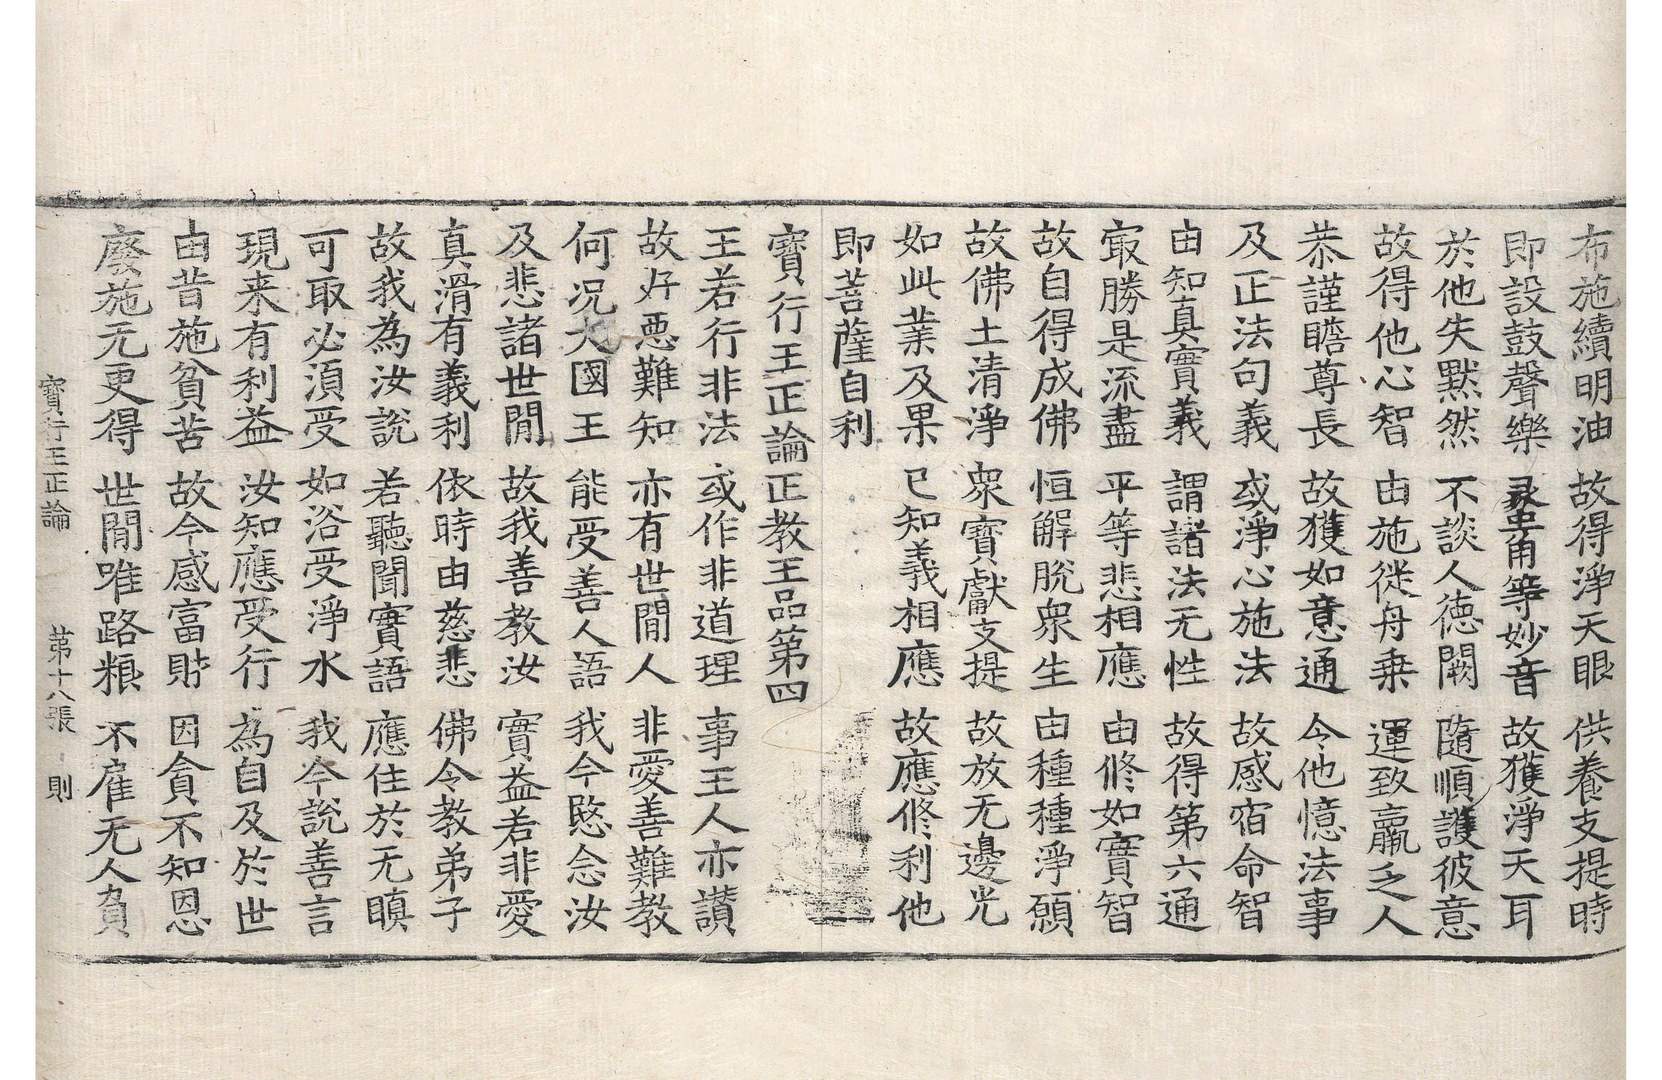 布施續明油 故得淨天眼 供養支提時
即設鼓聲樂 𧎮角等妙音 故獲淨天耳
於他失默然 不談人徳闕 隨順護彼意
故得他心智 由施從舟乗 運致羸乏人
恭謹瞻尊長 故獲如意通 今他憶法事
及正法句義 或淨心施法 故感宿命智
由知真實義 謂諸法无性 故得第六通
㝡勝是流盡 平等悲相應 由修如實智
故自得成佛 恒解脫衆生 由種種淨願
故佛土清淨 衆寳獻支提 故放无邊光
如此業及果 已知義相應 故應修利他
即菩薩自利
寳行王正論正教王品第四
王若行非法 或作非道理 事王人亦讃
故好𢙣難知 亦有世閒人 非愛善難教
何況大國王 能受善人語 我今愍念汝
及悲諸世閒 故我善教汝 實益若非愛
真滑有義利 依時由慈悲 佛令教弟子
故我為汝說 若聽聞實語 應住於无瞋
可取必湏受 如浴受淨水 我今說善言
現来有利益 汝知應受行 為自及於世
由昔施貧苦 故今感富財 因貪不知恩
廢施无更得 世閒唯路粮 不雇无人負
寳行王正論 苐十八張 則